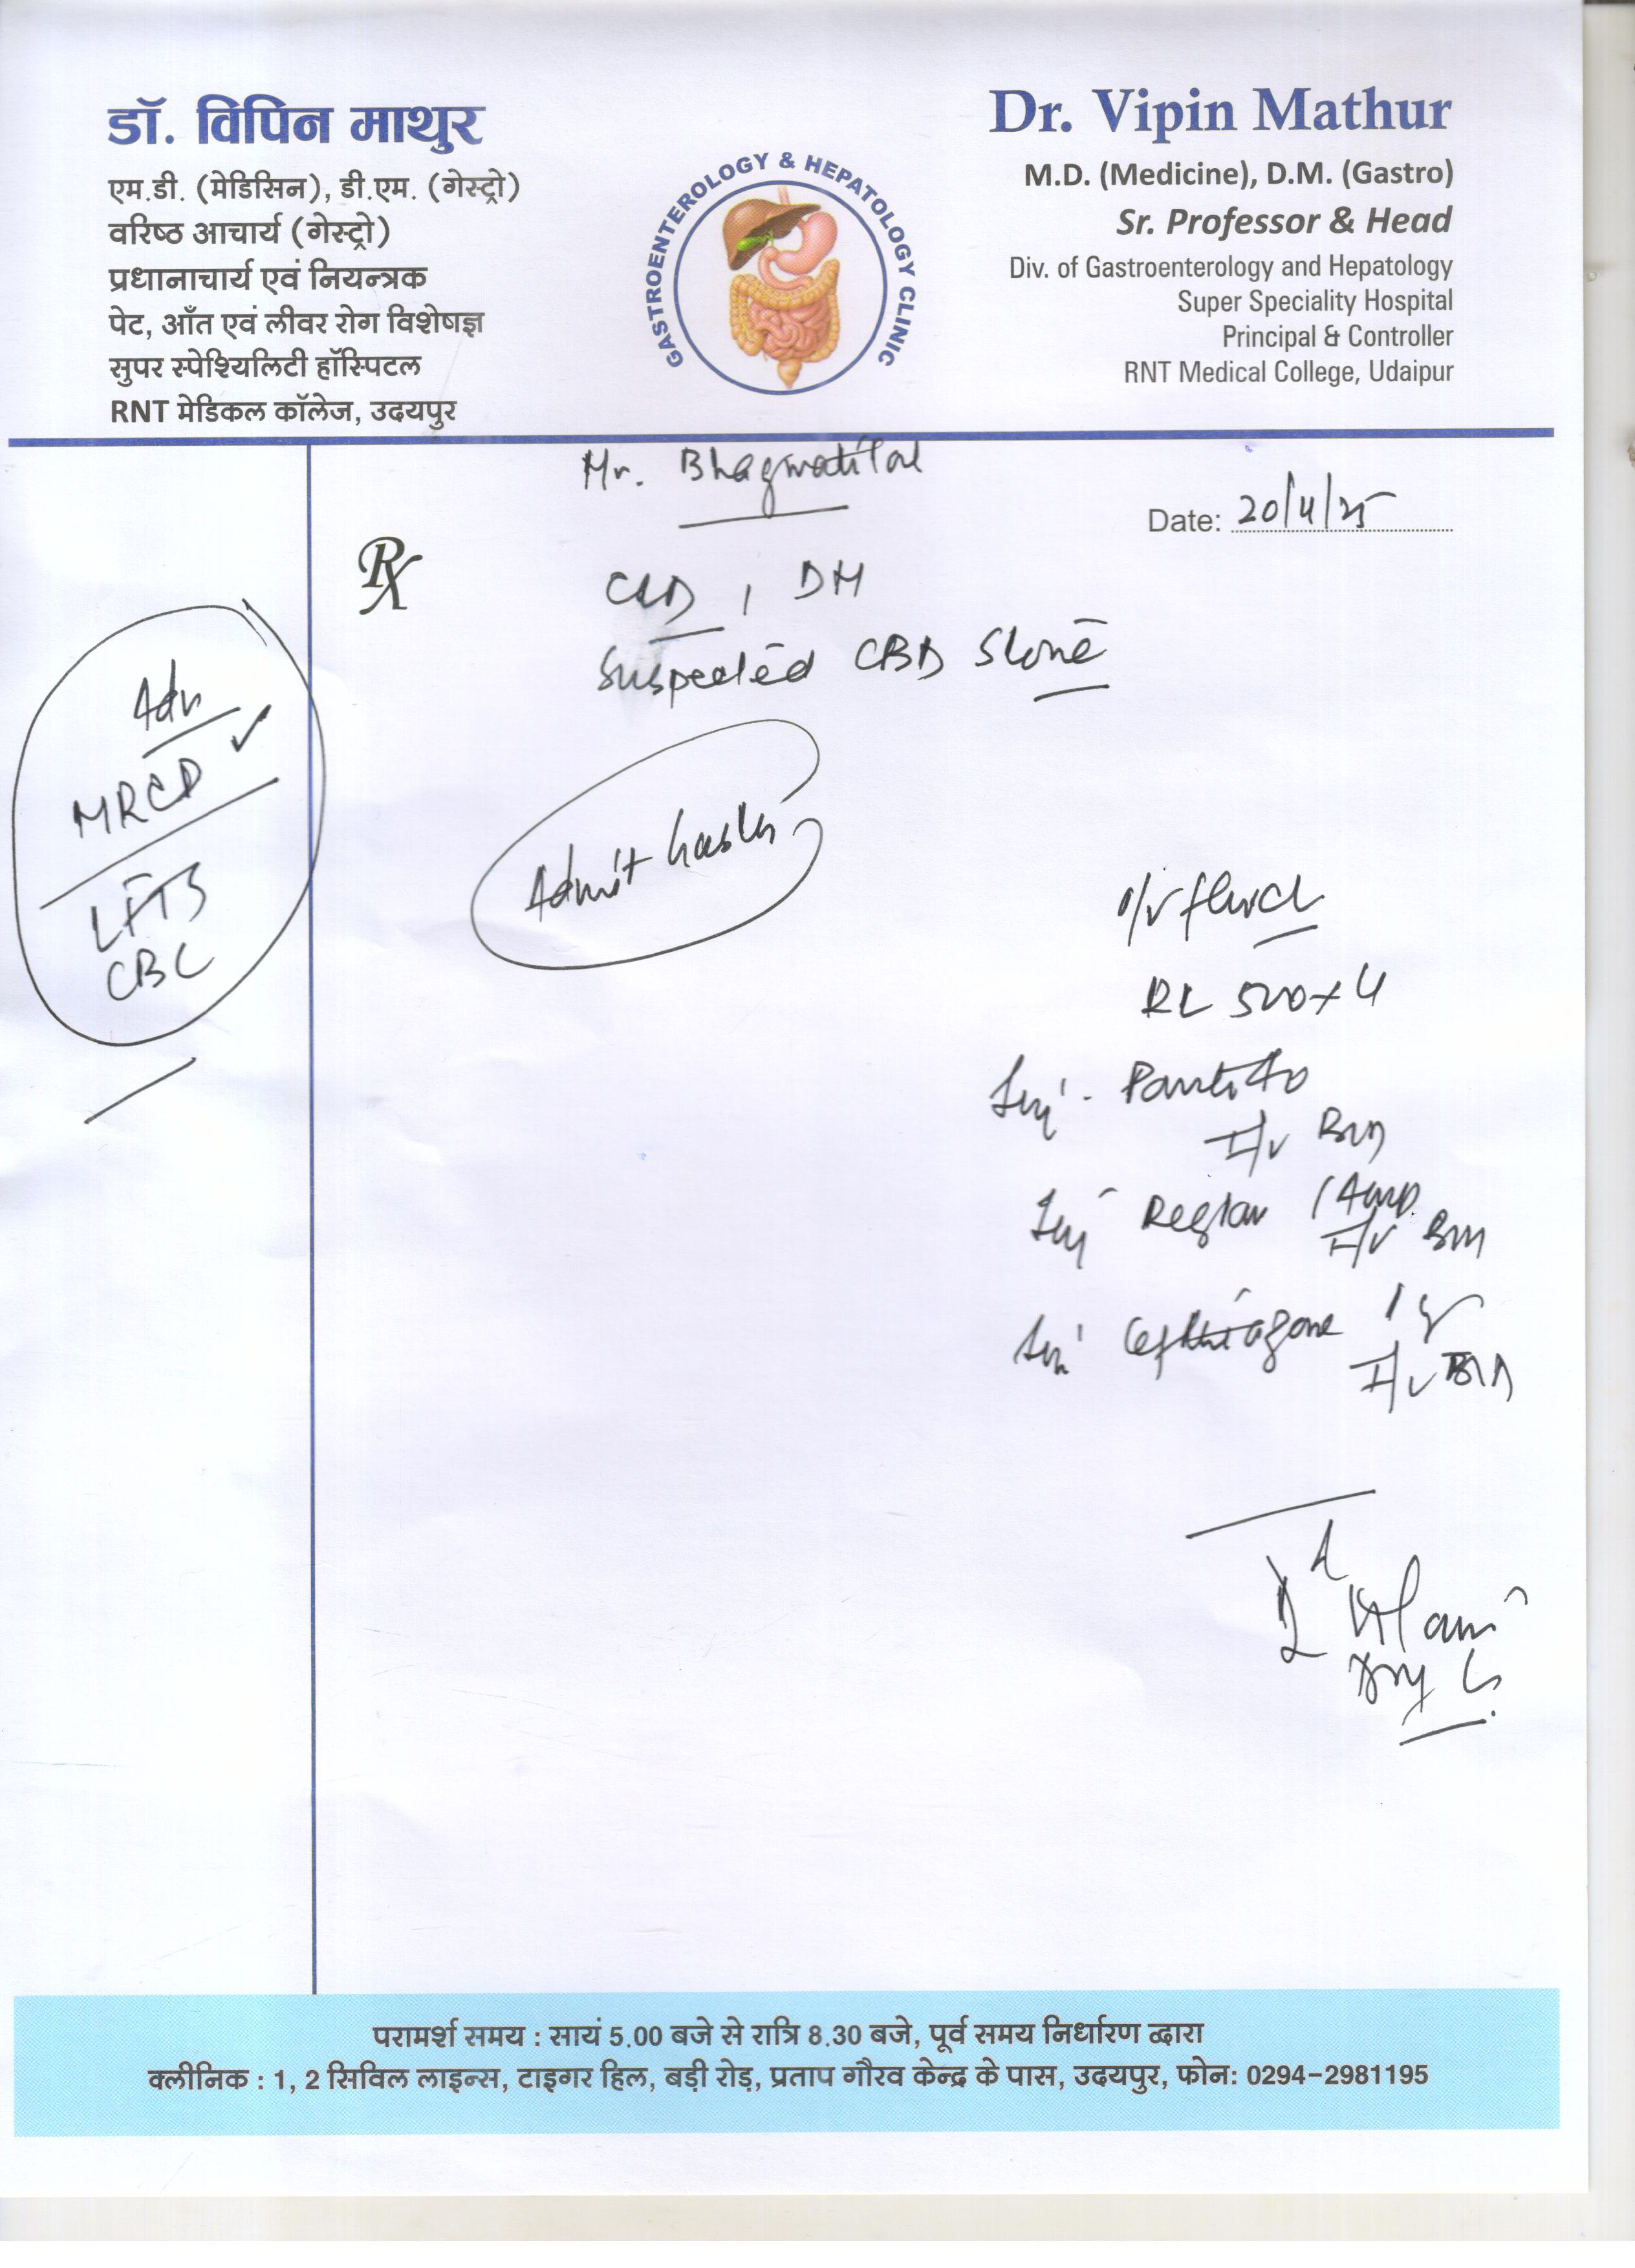 डॉ. विपिन माथुर
एम.डी. (मेडिसिन), डी.एम. (गेस्ट्रो)
वरिष्ठ आचार्य (गेस्ट्रो)
प्रधानाचार्य एवं नियन्त्रक
पेट, आँत एवं लीवर रोग विशेषज्ञ
सुपर स्पेश्यिलिटी हॉस्पिटल
RNT मेडिकल कॉलेज, उदयपुर
GASTROENTEROLOGY & HEPATOLOGY CLINIC
Dr. Vipin Mathur
M.D. (Medicine), D.M. (Gastro)
Sr. Professor & Head
Div. of Gastroenterology and Hepatology
Super Speciality Hospital
Principal & Controller
RNT Medical College, Udaipur
Mr. Bhagwatilal
Date: 20/4/25
Rx
CLD, DM
Suspected CBD Stone
Adv
MRCP ✓
LFTS
CBC
Admit
I/v fluid
RL 500 x 4
Inj. Panto 40
I/v BD
Inj Reglan 1 Amp
I/v BD
Inj Ceftriaxone 1 g
I/v BD
परामर्श समय : सायं 5.00 बजे से रात्रि 8.30 बजे, पूर्व समय निर्धारण द्वारा
क्लीनिक : 1, 2 सिविल लाइन्स, टाइगर हिल, बड़ी रोड़, प्रताप गौरव केन्द्र के पास, उदयपुर, फोन: 0294-2981195